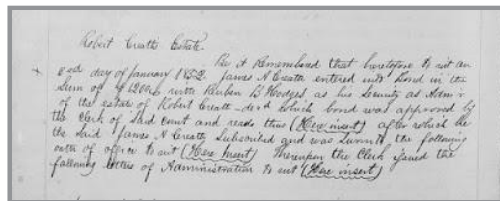 Robert Creath Estate.
Be it Remembered that heretofore to wit on
2nd day of January 1852. James N Creath entered into bond in the
Sum of $1200.00 with Reuben B Hodges as his security as Adm.r
of the estate of Robert Creath decd which bond was approved by
the Clerk of said court and reads thus (Here insert) after which he
the said James N Creath Subscribed and was Sworn to the following
oath of office to wit (Here Insert) Thereupon the Clerk issued the
following letters of Administration to wit (Here insert)